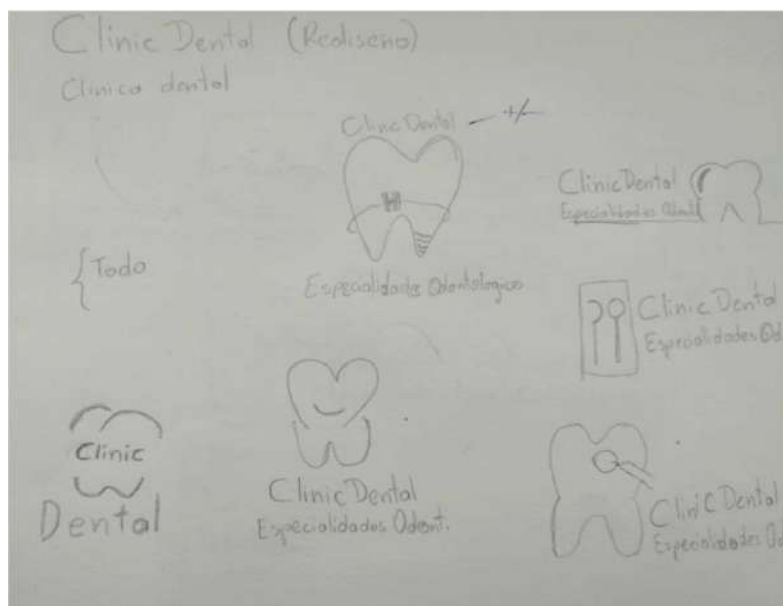 Clinic Dental (Rediseño)
Clinica dental
Clinic Dental +/-
Especialidades Odontologicas
Clinic Dental
Especialidades Odont
{Todo
Clinic Dental
Especialidades Od
Clinic
Dental
Clinic Dental
Especialidades Odont.
Clinic Dental
Especialidades Od